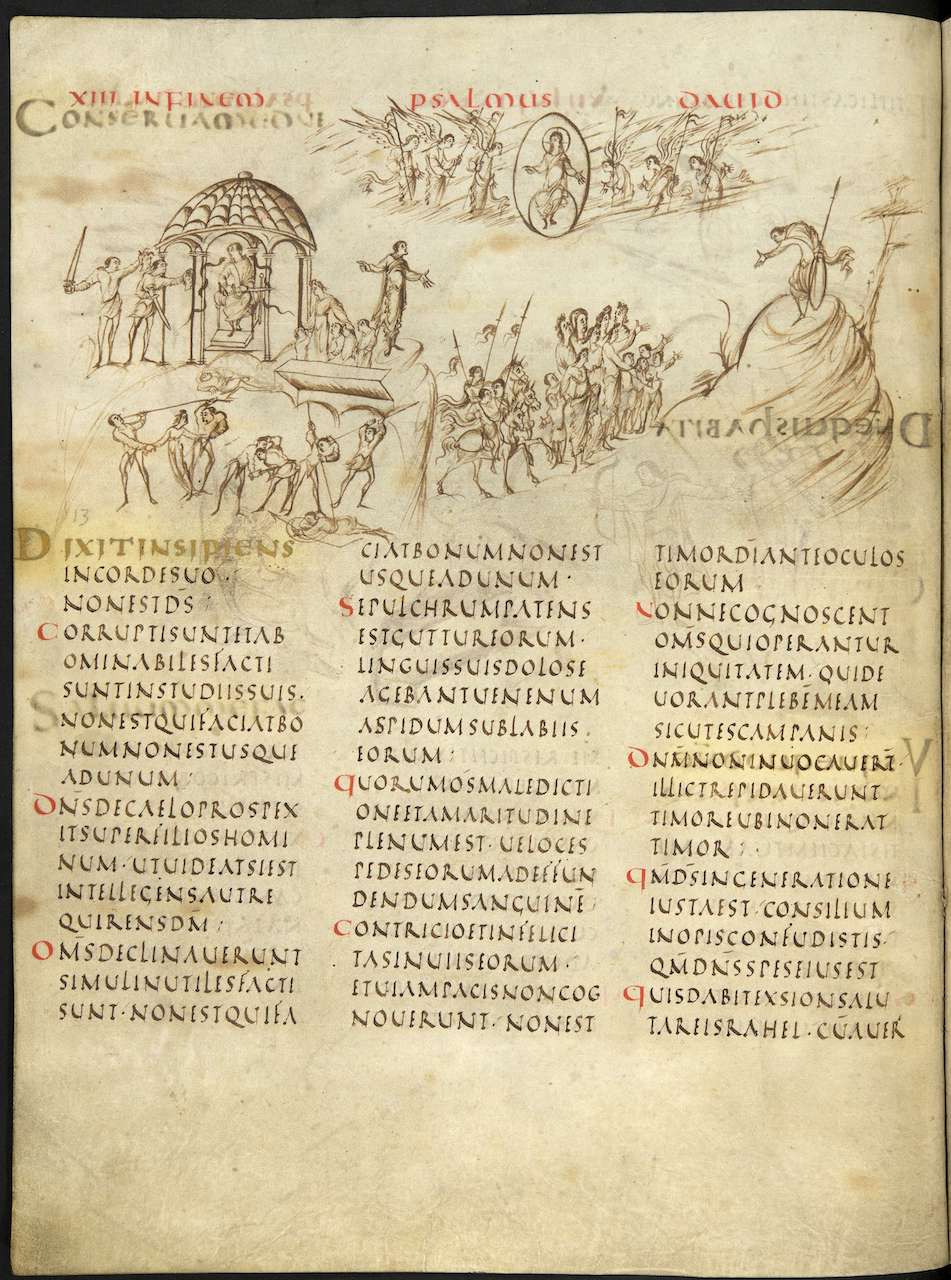 XIII INFINEM PSALMUS DAUID
DIXITINSIPIENS
INCORDESUO·
NONESTDS̄
CORRUPTISUNTETAB
OMINABILESFACTI
SUNTINSTUDIISSUIS.
NONESTQUIFACIATBO
NUMNONESTUSQUE
ADUNUM;
DN̄SDECAELOPROSPEX
ITSUPERFILIOSHOMI
NUM·UTUIDEATSIEST
INTELLEGENSAUTRE
QUIRENSDM̄;
OMS̄DECLINAUERUNT
SIMULINUTILESFACTI
SUNT·NONESTQUIFA
CIATBONUMNONEST
USQUEADUNUM·
SEPULCHRUMPATENS
ESTGUTTUREORUM·
LINGUISSUISDOLOSE
AGEBANTUENENUM
ASPIDUMSUBLABIIS.
EORUM;
QUORUMOSMALEDICTI
ONEETAMARITUDINE
PLENUMEST·UELOCES
PEDESEORUMADEFFUN
DENDUMSANGUINĒ;
CONTRICIOETINFELICI
TASINUIISEORUM·
ETUIAMPACISNONCOG
NOUERUNT·NONEST
TIMORDĪANTEOCULOS
EORUM
NONNECOGNOSCENT
OMS̄QUIOPERANTUR
INIQUITATEM·QUIDE
UORANTPLEBĒMEAM
SICUTESCAMPANIS;
DNM̄NONINUOCAUERT̄·
ILLICTREPIDAUERUNT
TIMOREUBINONERAT
TIMOR;
QM̄DS̄INGENERATIONE
IUSTAEST·CONSILIUM
INOPISCONFUDISTIS·
QM̄DN̄SSPESEIUSEST
QUISDABITEXSIONSALU
TAREISRAHEL·CŪAUER̄